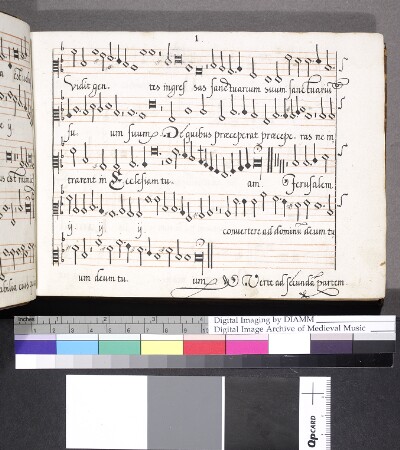 1
Vidit gen. tes ingres sas sanctuarium suum sanctuariū
su. um suum. De quibus præceperat præcepe. ras ne in
trarent in Ecclesiam tu. am Jerusalem.
y. y. y. convertere ad dominū deum tu
um deum tu. um. Verte ad secundā partem
inches 1 2
Digital Imaging by DIAMM
Digital Image Archive of Medieval Music
QPCARD